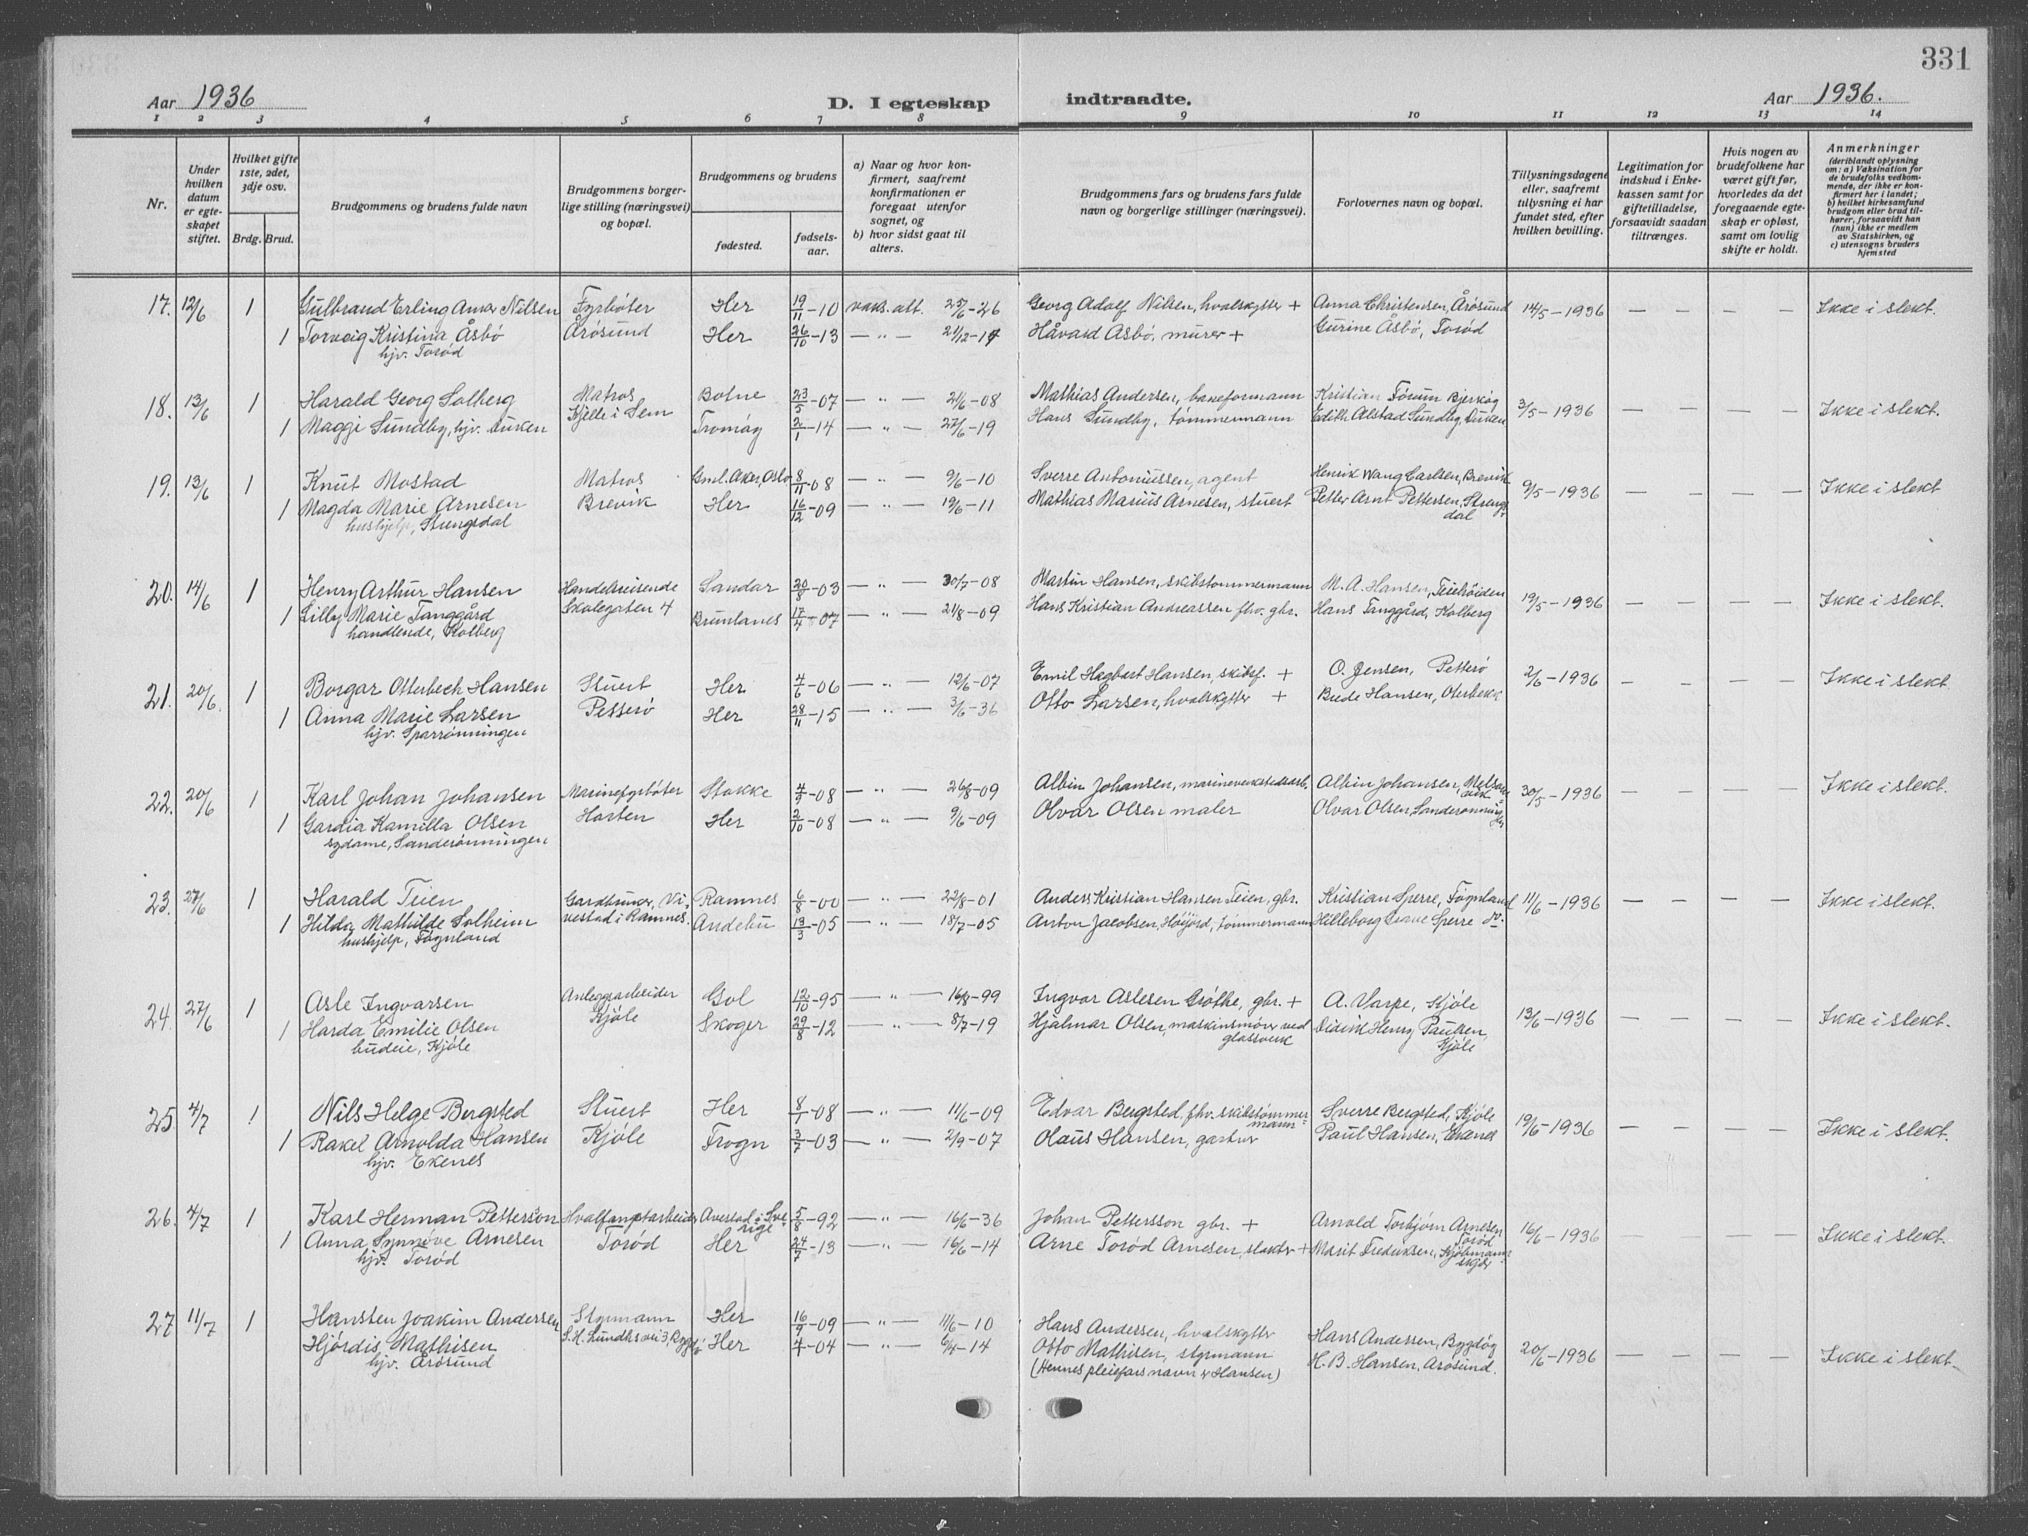 331
Aar 1936
D. I egteskap indtraadte.
Aar 1936.
1 2 3 4 5 6 7 8 9 10 11 12 13 14
Nr.
Under hvilken datum er egteskapet stiftet.
Hvilket gifte 1ste, 2det, 3dje osv.
Brdg. Brud.
Brudgommens og brudens fulde navn
Brudgommens borgerlige stilling (næringsvei) og bopæl.
Brudgommens og brudens
fødested.
fødselsaar.
a) Naar og hvor konfirmert, saafremt konfirmationen er foregaat utenfor sognet, og
b) hvor sidst gaat til alters.
Brudgommens fars og brudens fars fulde navn og borgerlige stillinger (næringsvei).
Forlovernes navn og bopæl.
Tillysningsdagene eller, saafremt tillysning ei har fundet sted, efter hvilken bevilling.
Legitimation for indskud i Enkekassen samt for giftetilladelse, forsaavidt saadan tiltrænges.
Hvis nogen av brudefolkene har været gift før, hvorledes da det foregaaende egteskap er opløst, samt om lovlig skifte er holdt.
Anmerkninger
(deriblandt oplysning om: a) Vaksination for de brudefolks vedkommende, der ikke er konfirmert her i landet; b) hvilket kirkesamfund brudgom eller brud tilhører, forsaavidt han (hun) ikke er medlem av Statskirken, og c) utensogns bruders hjemsted
17. 12/6 1 Gulbrand Erling Anker Nilsen Fyrbøter Her 19/11-10 vaks. att. 25/6-26 Georg Adolf Nilsen, hvalskytter + Anna Christensen, Årøsund 14/5-1936 — — — — Ikke i slekt.
1 Torveig Kristina Åsbø Årøsund Her 26/10-13 — " — 21/12-14 Håvard Åsbø, murer + Gurine Åsbø, Torød
hjv. Torød
18. 13/6 1 Harald Georg Solberg Matros Botne 23/5-07 — " — 21/6-08 Mathias Andersen, baneformann Kristian Førum Bjerkøy 3/5-1936 — — — — Ikke i slekt.
1 Maggi Sundby, hjv. Duken Kjelle i Sem Tromøy 2/1-14 — " — 27/6-19 Hans Sundby, tømmermann Edith Alstad Sundby, Duken
19. 13/6 1 Knut Mostad Matros Gml. Aker, Oslo 8/11-08 — " — 9/6-10 Sverre Antoniussen, agent Henrik Wang Carlsen, Brevik 9/5-1936 — — — — Ikke i slekt
1 Magda Marie Arnesen Brevik Her 16/12-09 — " — 19/6-11 Mathias Marius Arnesen, stuert Petter Arnt Pettersen, Strengsdal
hushjelp, Strengsdal
20. 14/6 1 Henry Arthur Hansen Handelsreisende Sandar 20/8-03 — " — 30/7-08 Martin Hansen, skibstømmermann M. A. Hansen, Teiehøiden 19/5-1936 — — — — Ikke i slekt.
1 Lilly Marie Tanggård Skolegaten 4 Brunlanes 17/4-07 — " — 21/8-09 Hans Kristian Andreassen fhv. gbr. Hans Tanggård, Kolberg
handlende, Kolberg
21. 20/6. 1 Borgar Otterbech Hansen Stuert Her 4/6-06 — " — 12/6-07 Emil Hagbart Hansen, skibsf. + O. Jensen, Petterø 2/6-1936 — — — — Ikke i slekt.
1 Anna Marie Larsen Petterø Her 28/11-15 — " — 3/6-36 Otto Larsen, hvalskytter + Berde Hansen, Oterbekk
hjv. Sparrønningen
22. 20/6 1 Karl Johan Johansen Marinefyrbøter Stokke 4/2-08 — " — 26/8-09 Albin Johansen, marineverkstedsarb. Albin Johansen, Melsomvik 30/5-1936 — — — — Ikke i slekt.
1 Gardia Kamilla Olsen Horten Her 2/10-08 — " — 9/6-09 Olvar Olsen maler Olvar Olsen, Sanderønningen
sydame, Sanderønningen
23. 27/6 1 Harald Teien Gardbruker, Vivestad i Ramnes. Ramnes 6/8-00 — " — 22/8-01 Anders Kristian Hansen Teien, gbr. Kristian Sperre, Føynland 11/6-1936 — — — — Ikke i slekt.
1 Hilda Mathilde Solheim Andebu 13/3-05 — " — 18/7-05 Anton Jacobsen, Høijord, tømmermann Hilleborg Grave Sperre do.
hushjelp, Føynland
24. 27/6 1 Asle Ingvarsen Anleggsarbeider Gol 12/10-95 — " — 16/8-99 Ingvar Aslesen Grøthe, gbr. + A. Varpe, Kjøle 13/6-1936 — — — — Ikke i slekt.
1 Harda Emilie Olsen Kjøle Skoger 29/8-12 — " — 8/7-19 Hjalmar Olsen, maskinsmører ved glassverk Didrik Henry Paulsen, Kjøle
budeie, Kjøle
25 4/7 1 Nils Helge Bergsted Stuert Her 8/1-08 — " — 11/6-09 Edvar Bergsted, fhv. skibstømmermann Sverre Bergsted, Kjøle 19/6-1936 — — — — Ikke i slekt.
1 Rakel Arnolda Hansen Kjøle Frogn 3/7-03 — " — 2/9-07 Olaus Hansen, gartner Paul Hansen, Ekenes
hjv. Ekenes
26. 4/7 1 Karl Herman Petterson Hvalfangstarbeider Avestad i Sverige 5/8-92 — " — 16/6-36 Johan Pettersson gbr. + Arnold Torbjørn Arnesen Torød 16/6-1936 — — — — Ikke i slekt.
1 Anna Synnøve Arnesen Torød Her 24/2-13 — " — 16/6-14 Arne Torød Arnesen, slakter + Marit Fredriksen, Kjøbmannskjær
hjv. Torød
27 11/7 1 Hansten Joakim Andersen Styrmann Her 16/9-09 — " — 11/6-10 Hans Andersen, hvalskytter Hans Andersen, Bygdøy 20/6-1936 — — — — Ikke i slekt.
1 Hjørdis Mathisen S. H. Lundhs vei 3, Bygdø Her 4/4-04 — " — 6/4-14 Otto Mathisen, styrmann H. B. Hansen, Årøsund.
hjv. Årøsund (Hennes pleiefars navn er Hansen)